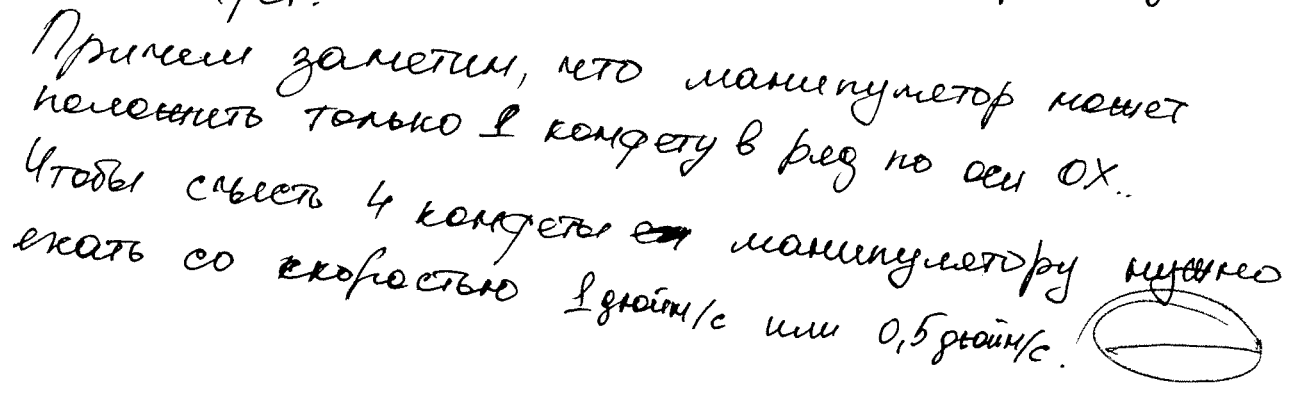 Причем заметим, что манипулятор может
положить только 1 конфету в ряд по оси OX..
Чтобы съесть 4 конфеты манипулятору нужно
ехать со скоростью 1 дюйм/с или 0,5 дюйм/с.